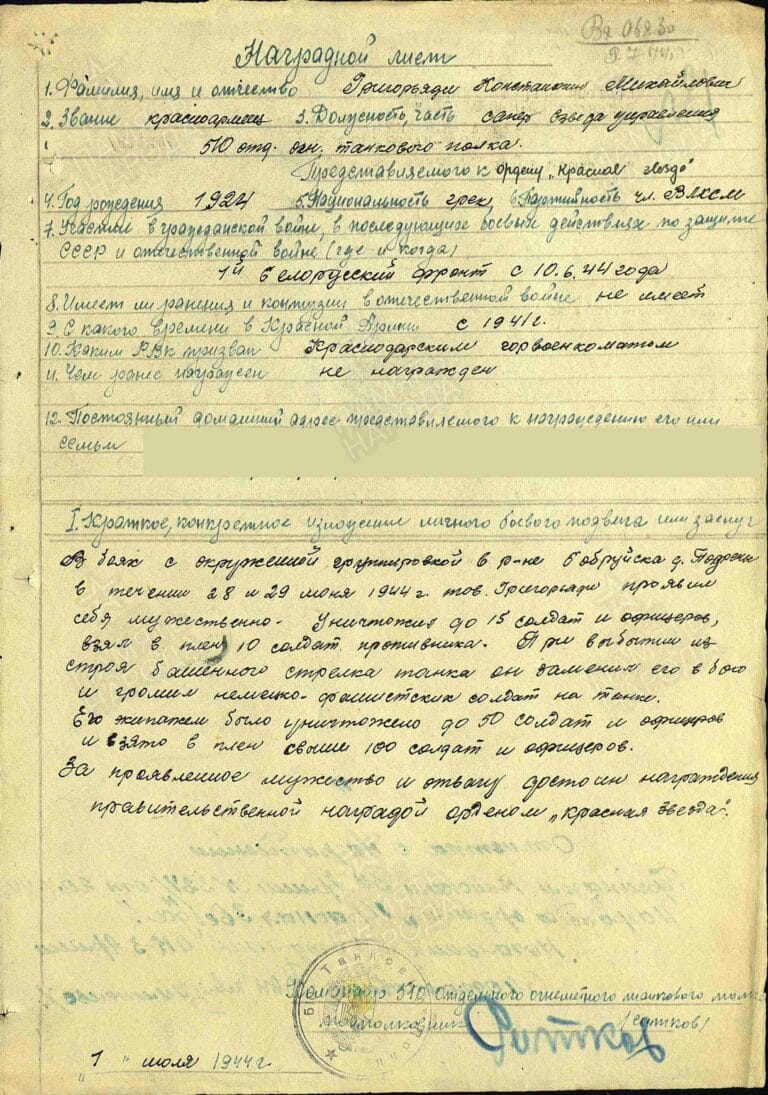 Вх 06830
9.7.44
Наградной лист
1. Фамилия, имя и отчество Григорьяди Константин Михайлович
2. Звание красноармеец 3. Должность, часть сапер взвода управления
510 отд. огн. танкового полка.
Представляемого к ордену „Красная звезда"
4. Год рождения 1924 5. Национальность грек, 6. Партийность чл. ВЛКСМ
7. Участие в гражданской войне, в последующих боевых действиях по защите
СССР и отечественной войне (где и когда)
1й Белорусский фронт с 10.6.44 года
8. Имеет ли ранения и контузии в отечественной войне не имеет
9. С какого времени в Красной Армии с 1941 г.
10. Каким РВК призван Краснодарским горвоенкоматом
11. Чем ранее награжден не награжден
12. Постоянный домашний адрес представляемого к награждению его или
семьи
I. Краткое, конкретное изложение личного боевого подвига или заслуг
В боях с окруженной группировкой в р-не Бобруйска д.
в течении 28 и 29 июня 1944 г. тов. Григорьяди проявил
себя мужественно. Уничтожил до 15 солдат и офицеров,
взял в плен 10 солдат противника. При выбытии из
строя башенного стрелка танка он заменил его в бою
и громил немецко-фашистских солдат на танке.
Его экипажем было уничтожено до 50 солдат и офицеров
и взято в плен свыше 100 солдат и офицеров.
За проявленное мужество и отвагу достоин награждения
правительственной наградой орденом „Красная звезда".
Командир 510 Отдельного огнеметного танкового полка
подполковник
„1" июля 1944 г.